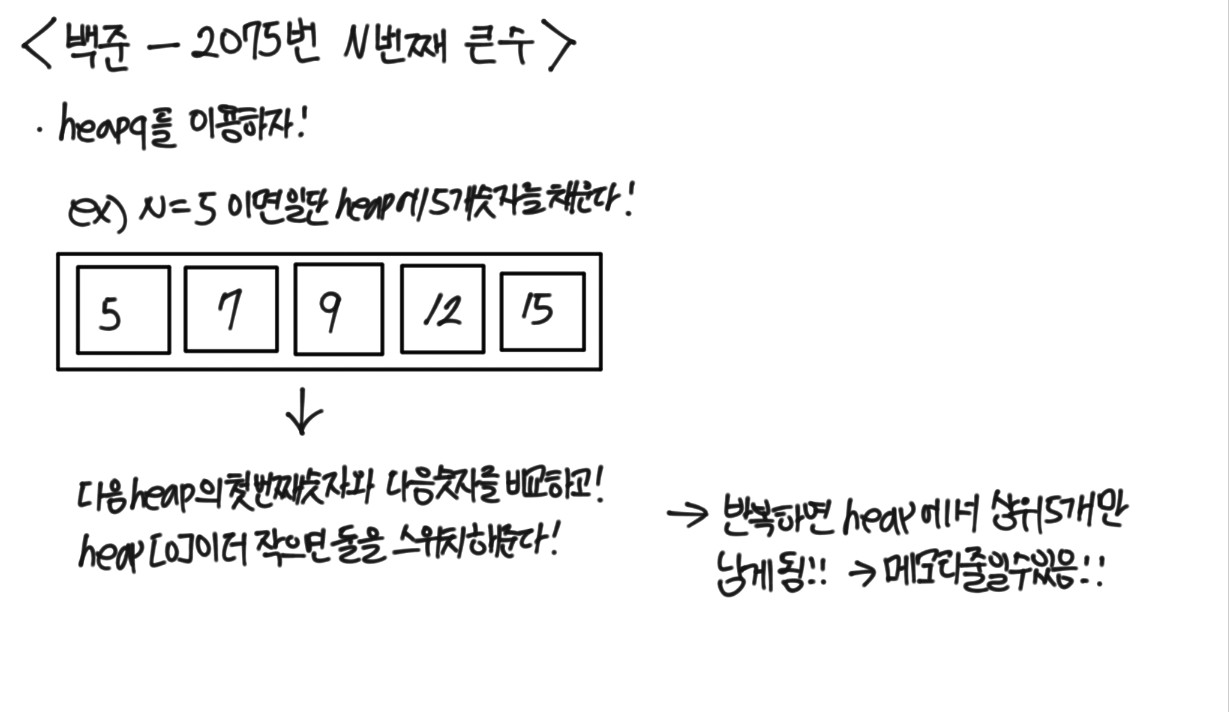 <백준 - 2075번 N번째 큰수>
· heapq를 이용하자!
ex) N=5 이면일단 heap에 5개숫자를채운다!
5 7 9 12 15
↓
다음heap의첫번째숫자와 다음숫자를 비교하고!
heap[0]이더 작으면 둘을 스위치해준다!
→ 반복하면 heap에서 상위5개만
남게 됨!! → 메모리줄일수있음!!